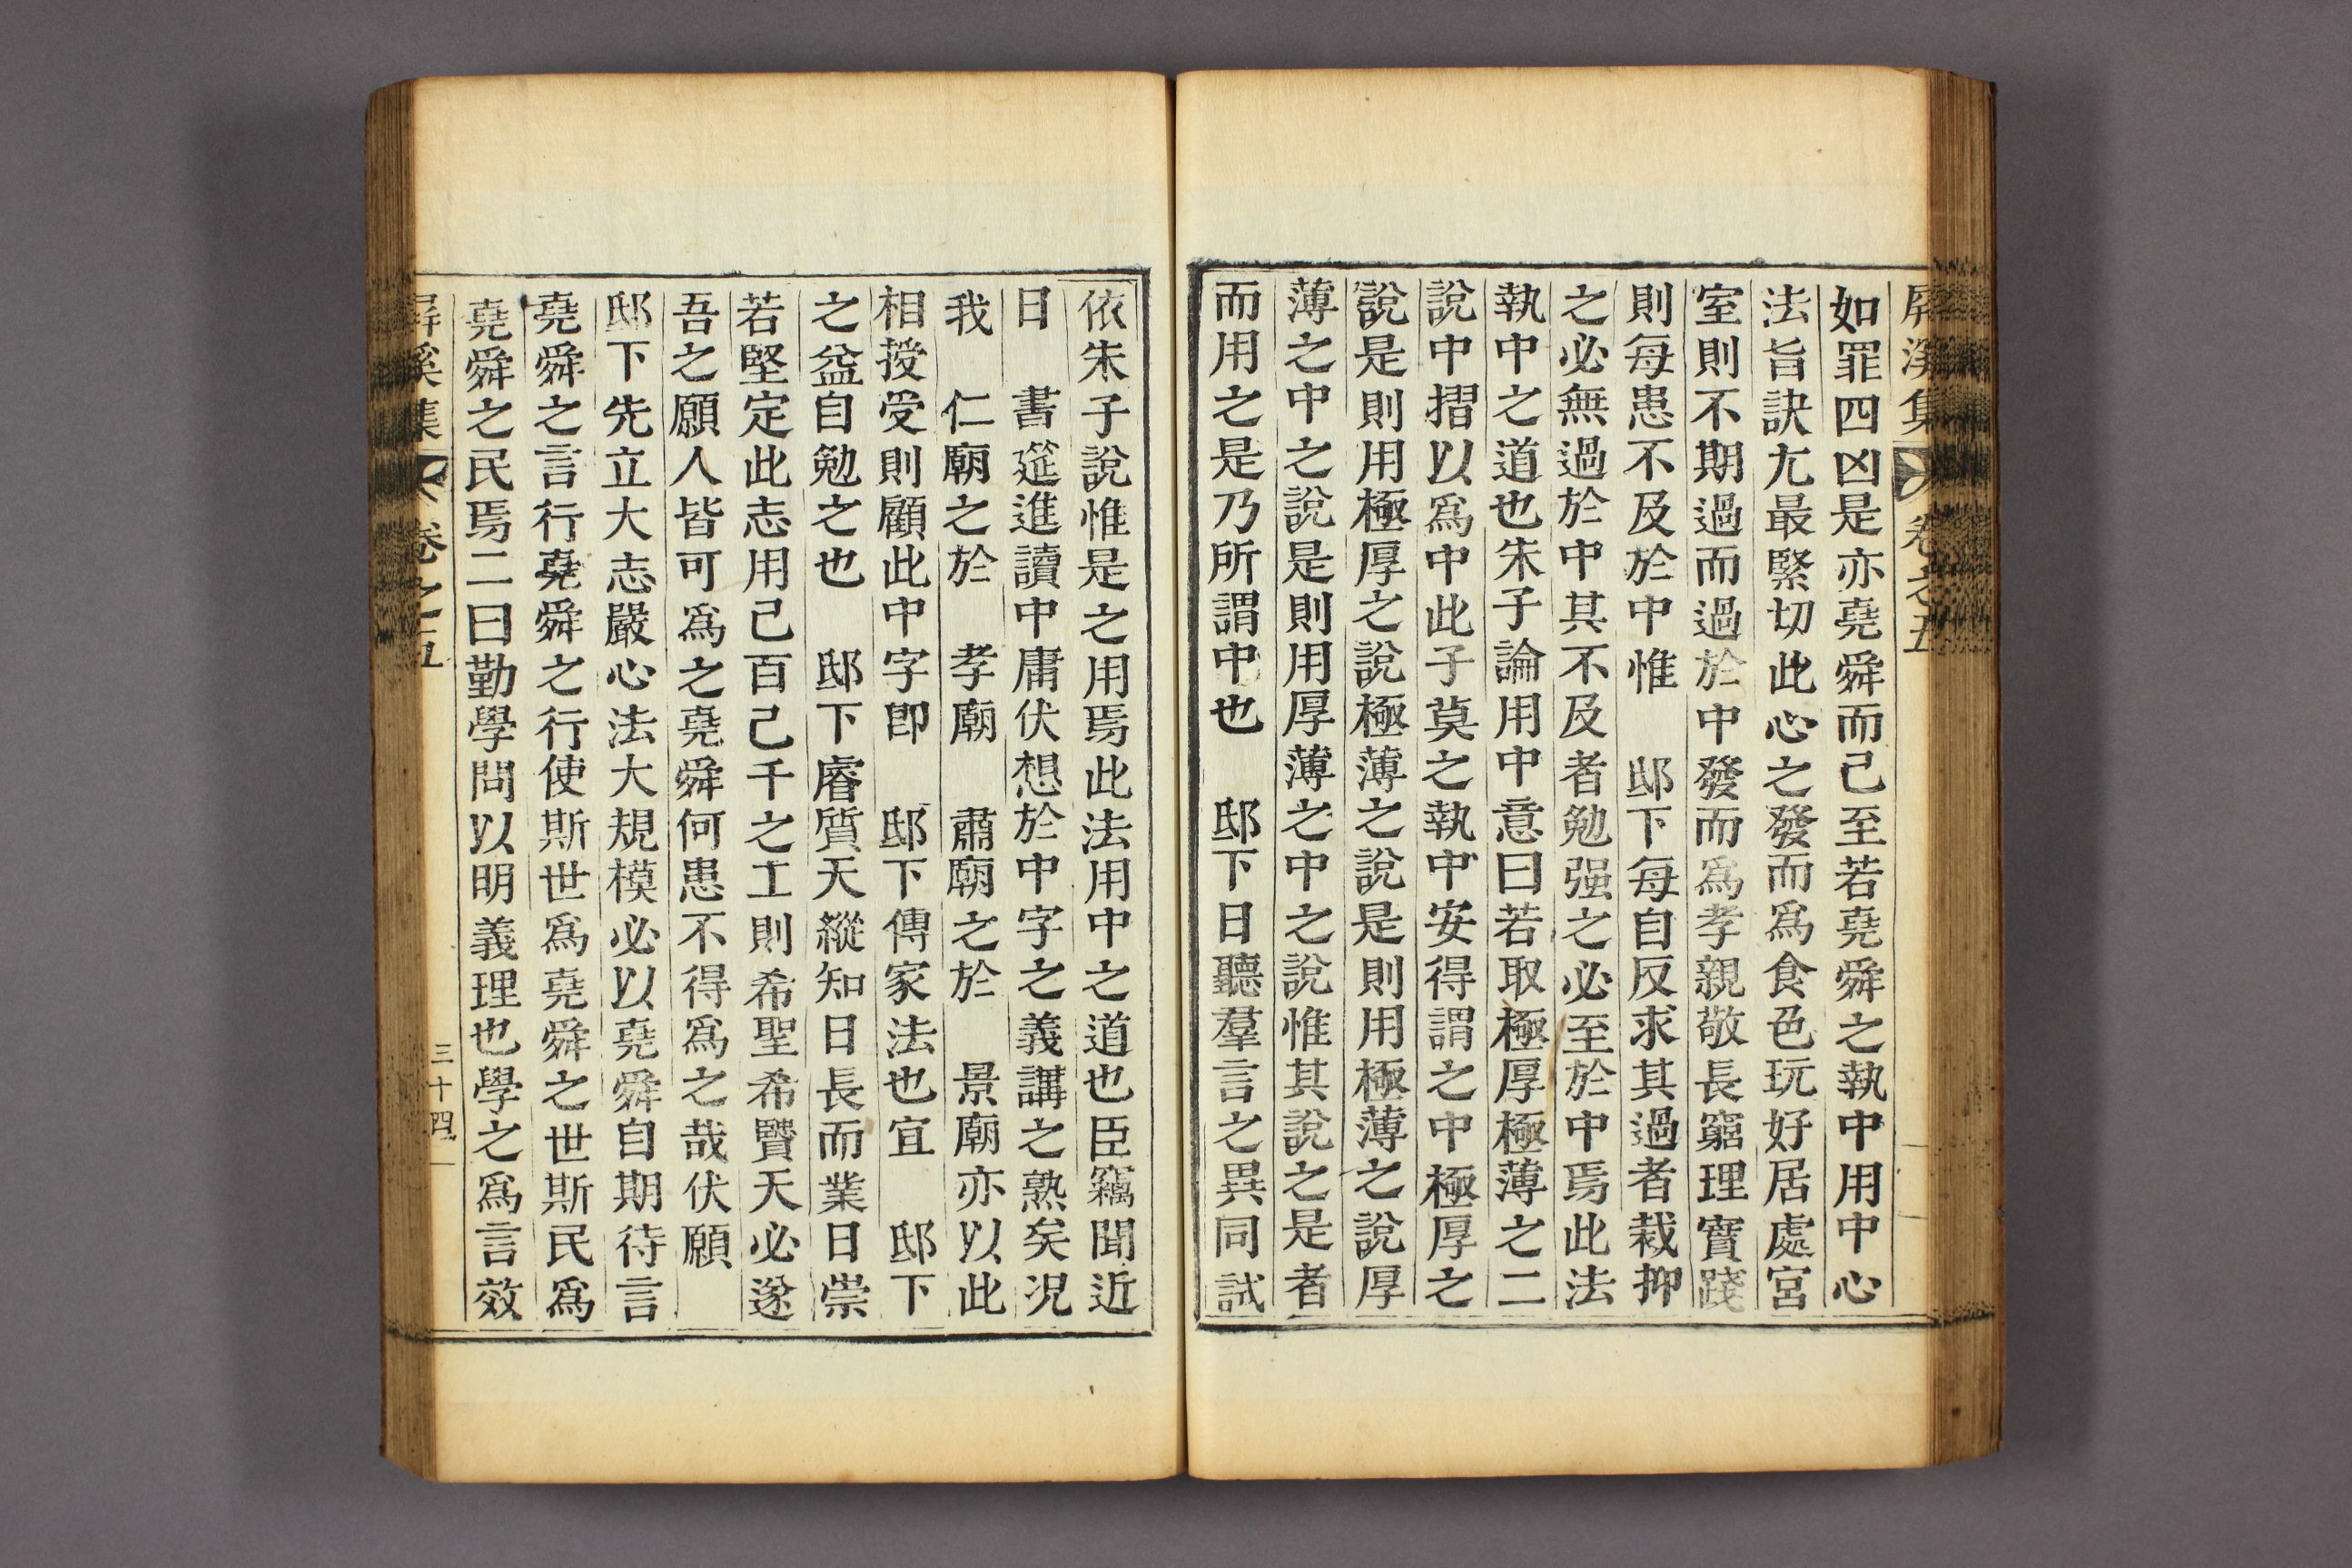 屏溪集 卷之五
如罪四凶是亦堯舜而已至若堯舜之執中用中心
法旨訣尤最緊切此心之發而爲食色玩好居處宮
室則不期過而過於中發而爲孝親敬長窮理實踐
則每患不及於中惟 邸下每自反求其過者裁抑
之必無過於中其不及者勉强之必至於中焉此法
執中之道也朱子論用中意曰若取極厚極薄之二
說中摺以爲中此子莫之執中安得謂之中極厚之
說是則用極厚之說極薄之說是則用極薄之說厚
薄之中之說是則用厚薄之中之說惟其說之是者
而用之是乃所謂中也 邸下日聽羣言之異同試
依朱子說惟是之用焉此法用中之道也臣竊聞近
日 書筵進讀中庸伏想於中字之義講之熟矣况
我 仁廟之於 孝廟 肅廟之於 景廟亦以此
相授受則顧此中字卽 邸下傳家法也宜 邸下
之益自勉之也 邸下睿質天縱知日長而業日崇
若堅定此志用己百己千之工則希聖希賢天必遂
吾之願人皆可爲之堯舜何患不得爲之哉伏願
邸下先立大志嚴心法大規模必以堯舜自期待言
堯舜之言行堯舜之行使斯世爲堯舜之世斯民爲
堯舜之民焉二曰勤學問以明義理也學之爲言效
屏溪集 卷之五 三十四